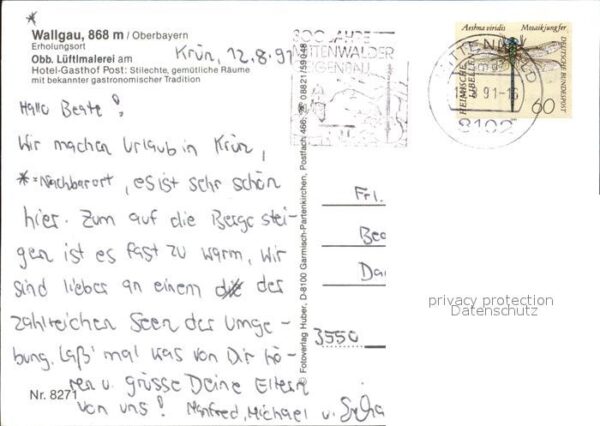 *
Wallgau, 868 m / Oberbayern
Erholungsort
Obb. Lüftlmalerei am
Hotel-Gasthof Post: Stilechte, gemütliche Räume
mit bekannter gastronomischer Tradition
Krün, 12.8.91
Hallo Beate!
Wir machen Urlaub in Krün,
*=Nachbarort, es ist sehr schön
hier. Zum auf die Berge stei-
gen ist es fast zu warm, wir
sind lieber an einem der
zahlreichen Seen der Umge-
bung. Laß' mal was von Dir hö-
ren u. grüsse Deine Eltern
von uns! Manfred, Michael u.
Nr. 8271
© Fotoverlag Huber, D-8100 Garmisch-Partenkirchen, Postfach 486, ☎ 08821/59048
300 JAHRE
MITTENWALDER
GEIGENBAU
MITTENWALD
8.91-16
8102
Aeshna viridis Mosaikjungfer
HEIMISCHE
LIBELLEN
DEUTSCHE BUNDESPOST
60
Frl.
Bea
3550
privacy protection
Datenschutz